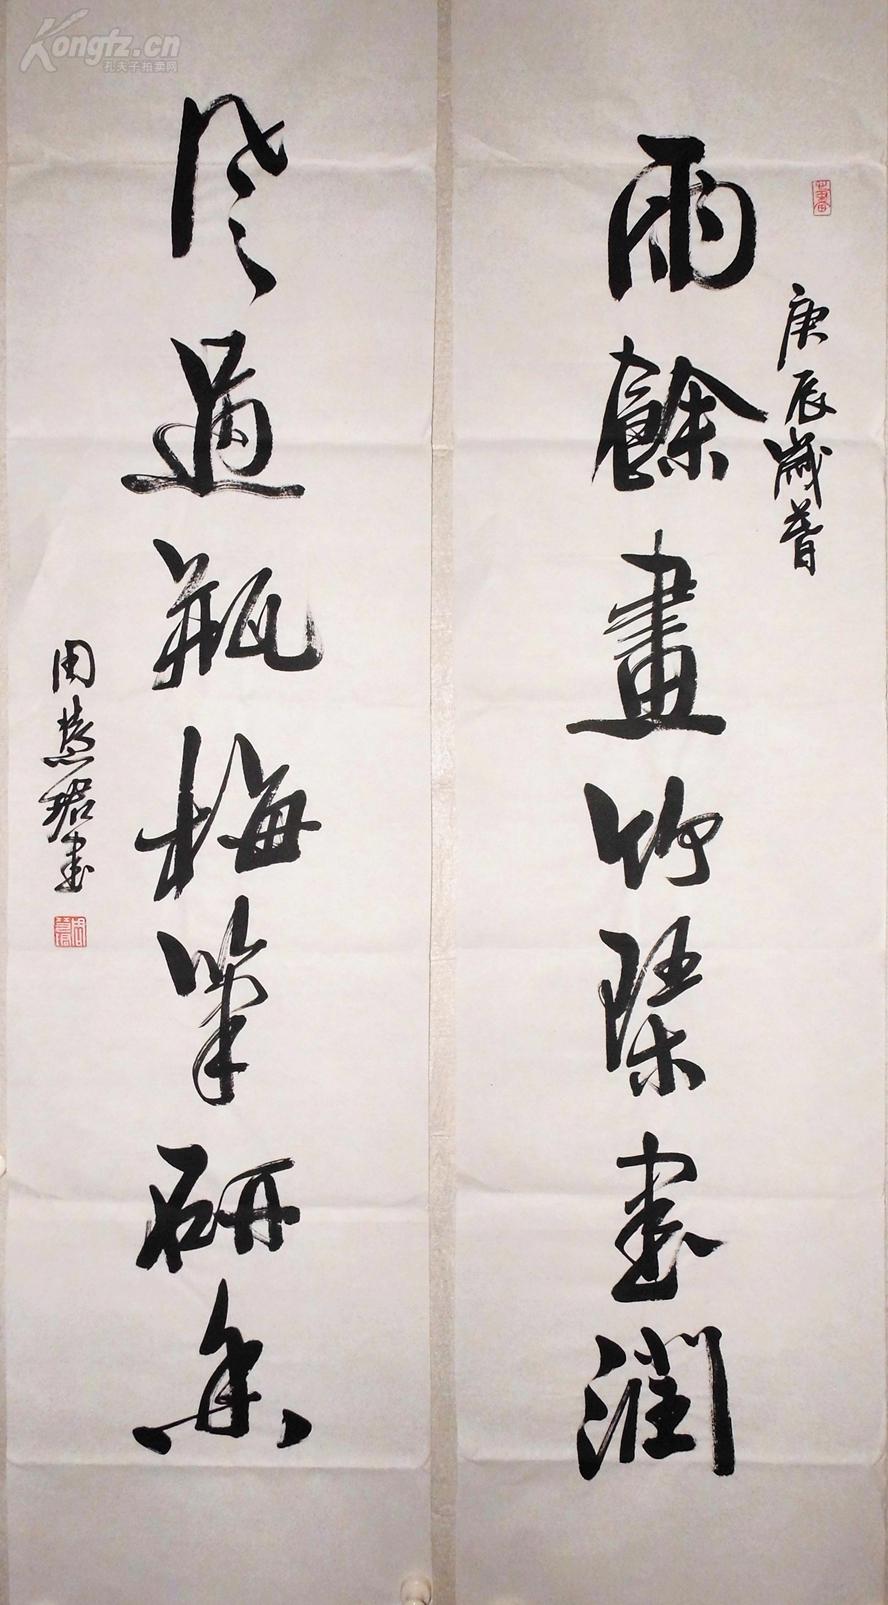 雨餘畫竹琹書潤
庚辰歲暮
風過瓶梅筆研香
周慧珺書
Kongfz.cn
孔夫子拍卖网